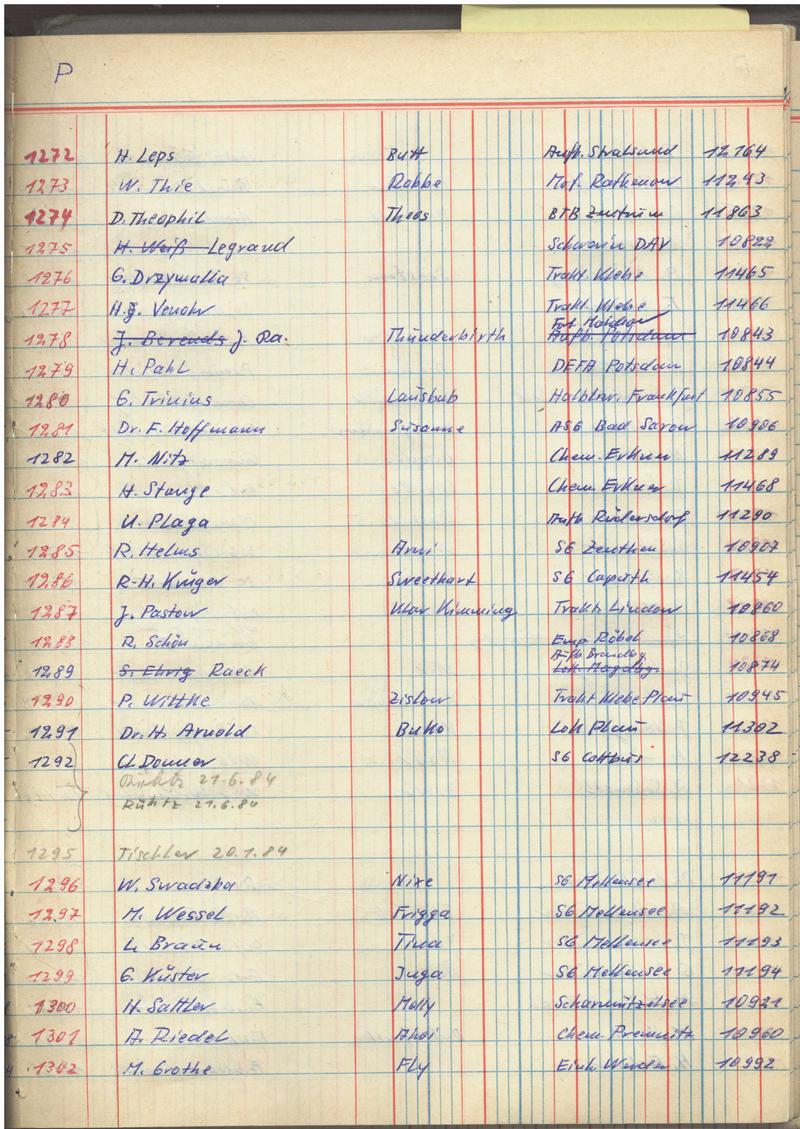 P
1272 H. Leps Butt Aufb. Stralsund 12164
1273 W. Thie Robbe Mot. Rathenow 11243
1274 D. Theophil Theos BTB Zentrum 11863
1275 H. Weiß Legrand Schwerin DAV 10822
1276 G. Drzymalla Trakt. Klebe 11465
1277 H.J. Venohr Trakt. Klebe 11466
1278 J. Berends J. Ra. Thunderbirth Aufb. Potsdam 10843
1279 H. Pahl DEFA Potsdam 10844
1280 G. Trinius Lausbub Halbltr. Frankfurt 10855
1281 Dr. F. Hoffmann Susanne ASG Bad Sarow 10906
1282 M. Nitz Chem. Erkner 11289
1283 H. Stange Chem. Erkner 11468
1284 U. Plaga Aufb. Rüdersdorf 11290
1285 R. Helms Arni SG Zeuthen 10907
1286 R-H. Krüger Sweethart SG Caputh 11454
1287 J. Pastow Klar Kimming Trakt. Lindow 10860
1288 R. Schön Emp Röbel 10868
Aufb Brandbg.
1289 S. Ehrig Raeck Lok. Magdbg. 10874
1290 P. Wittke Zislow Trakt Klebe Plau 10945
1291 Dr. H. Arnold Buko Lok Plau 11302
1292 Cl. Donner SG Cottbus 12238
Rühtz 21.6.84
Rühtz 21.6.84
1295 Tischler 20.1.84
1296 W. Swadzba Nixe SG Mellensee 11191
1297 M. Wessel Frigga SG Mellensee 11192
1298 L. Braun Tina SG Mellensee 11193
1299 G. Küster Inga SG Mellensee 11194
1300 H. Sattler Molly Scharmützelsee 10921
1301 A. Riedel Ahoi Chem. Premnitz 10960
1302 M. Grothe Fly Einh. Werder 10992